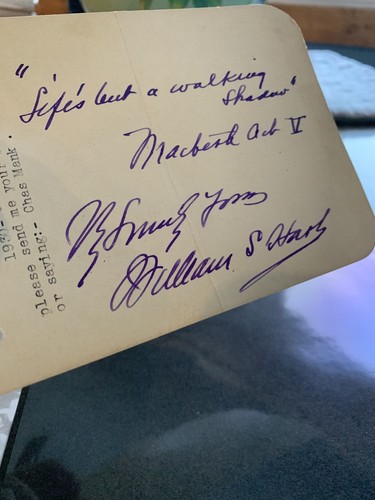 "Life's but a walking
Shadow"
Macbeth Act V
Sincerely Yours
William S Hart
193
please send me your
or saying:- Chas Mank.